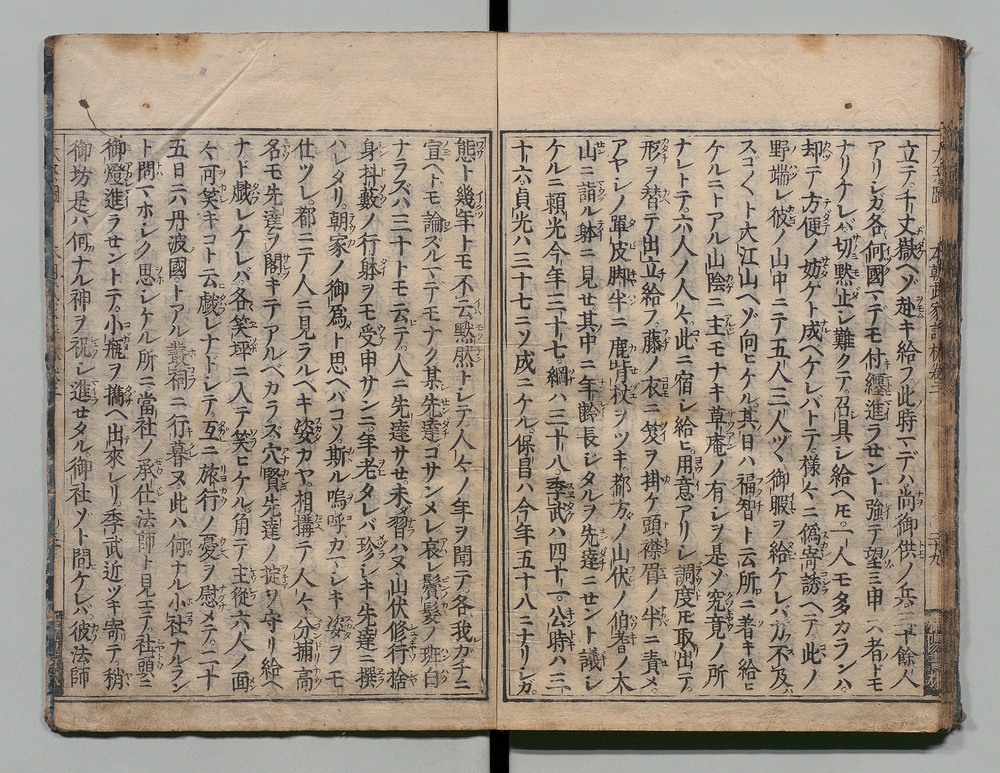 立テ千丈嶽ヘゾ赴キ給フ此時マデハ尚御供ノ兵二十餘人
アリシガ各何國マデモ付纏進ラセント強テ望ミ申ス者ドモ
ナリケレバ切默止難クテ召具シ給ヘ𪜈一人モ多カランハ
却テ方便ノ妨ゲト成ベケレバトテ樣々ニ僞寄誘ヘテ此ノ
野端レ彼ノ山中ニテ五人三人ヅヽ御暇ヲ給ケレバ力不及
スゴ〱ト大江山ヘゾ向ヒケル其日ハ福智ト云所ニ着キ給ヒ
ケルニトアル山陰ニ主モナキ草庵ノ有シヲ是ゾ究竟ノ所
ナレトテ六人ノ人々此ニ宿シ給ヒ用意アリシ調度𪜈取出テ
形ヲ替テ出立給フ藤ノ衣ニ笈ヲ掛ケ頭襟眉ノ半ニ責メ
アヤシノ單皮脚半ニ鹿背杖ヲツキ都方ノ山伏ノ伯耆ノ大
山ニ詣ル躰ニ見せ其中ニ年齡長シタルヲ先達ニセント議シ
ケルニ頼光今年三十七綱ハ三十八季武ハ四十一公時ハ三
十六貞光ハ三十七ニゾ成ニケル保昌ハ今年五十八ニナリシガ
態ト幾年トモ不云默然トシテ人々ノ年ヲ聞テ各我ガチニ
宣ヘトモ論ズルマデモナク某先達コサンメレ哀レ鬢髮ノ班白
ナラズバ三十トモ云テ人ニ先達サせ未習ハヌ山伏修行捨
身抖藪ノ行躰ヲモ受申サンニ年老タレバ珍シキ先達ニ撰
ハレタリ朝家ノ御爲ト思ヘバコソ斯ル嗚呼ガマシキ姿ヲモ
仕ツレ都ニテ人ニ見ラルベキ姿カヤ相構テ人々分捕高
名モ先達ヲ閣キテアルベカラズ穴賢先達ノ掟ヲ守リ給ヘ
ナド戯レケレバ各笑坪ニ入テ笑ヒケル角テ主從六人ノ面
々可笑キコト云戯レナドシテ互ニ旅行ノ憂ヲ慰メテ二十
五日ニハ丹波國トアル叢祠ニ行暮ヌ此ハ何ナル小社ナルラン
ト問マホシク思シケル所ニ當社ノ承仕法師ト見エテ社頭ニ
御燈進ラせントテ小瓶ヲ携ヘ出來レリ季武近ヅキ寄テ稍
御坊是ハ何ナル神ヲ祝ヒ進せタル御社ゾト問ケレバ彼法師